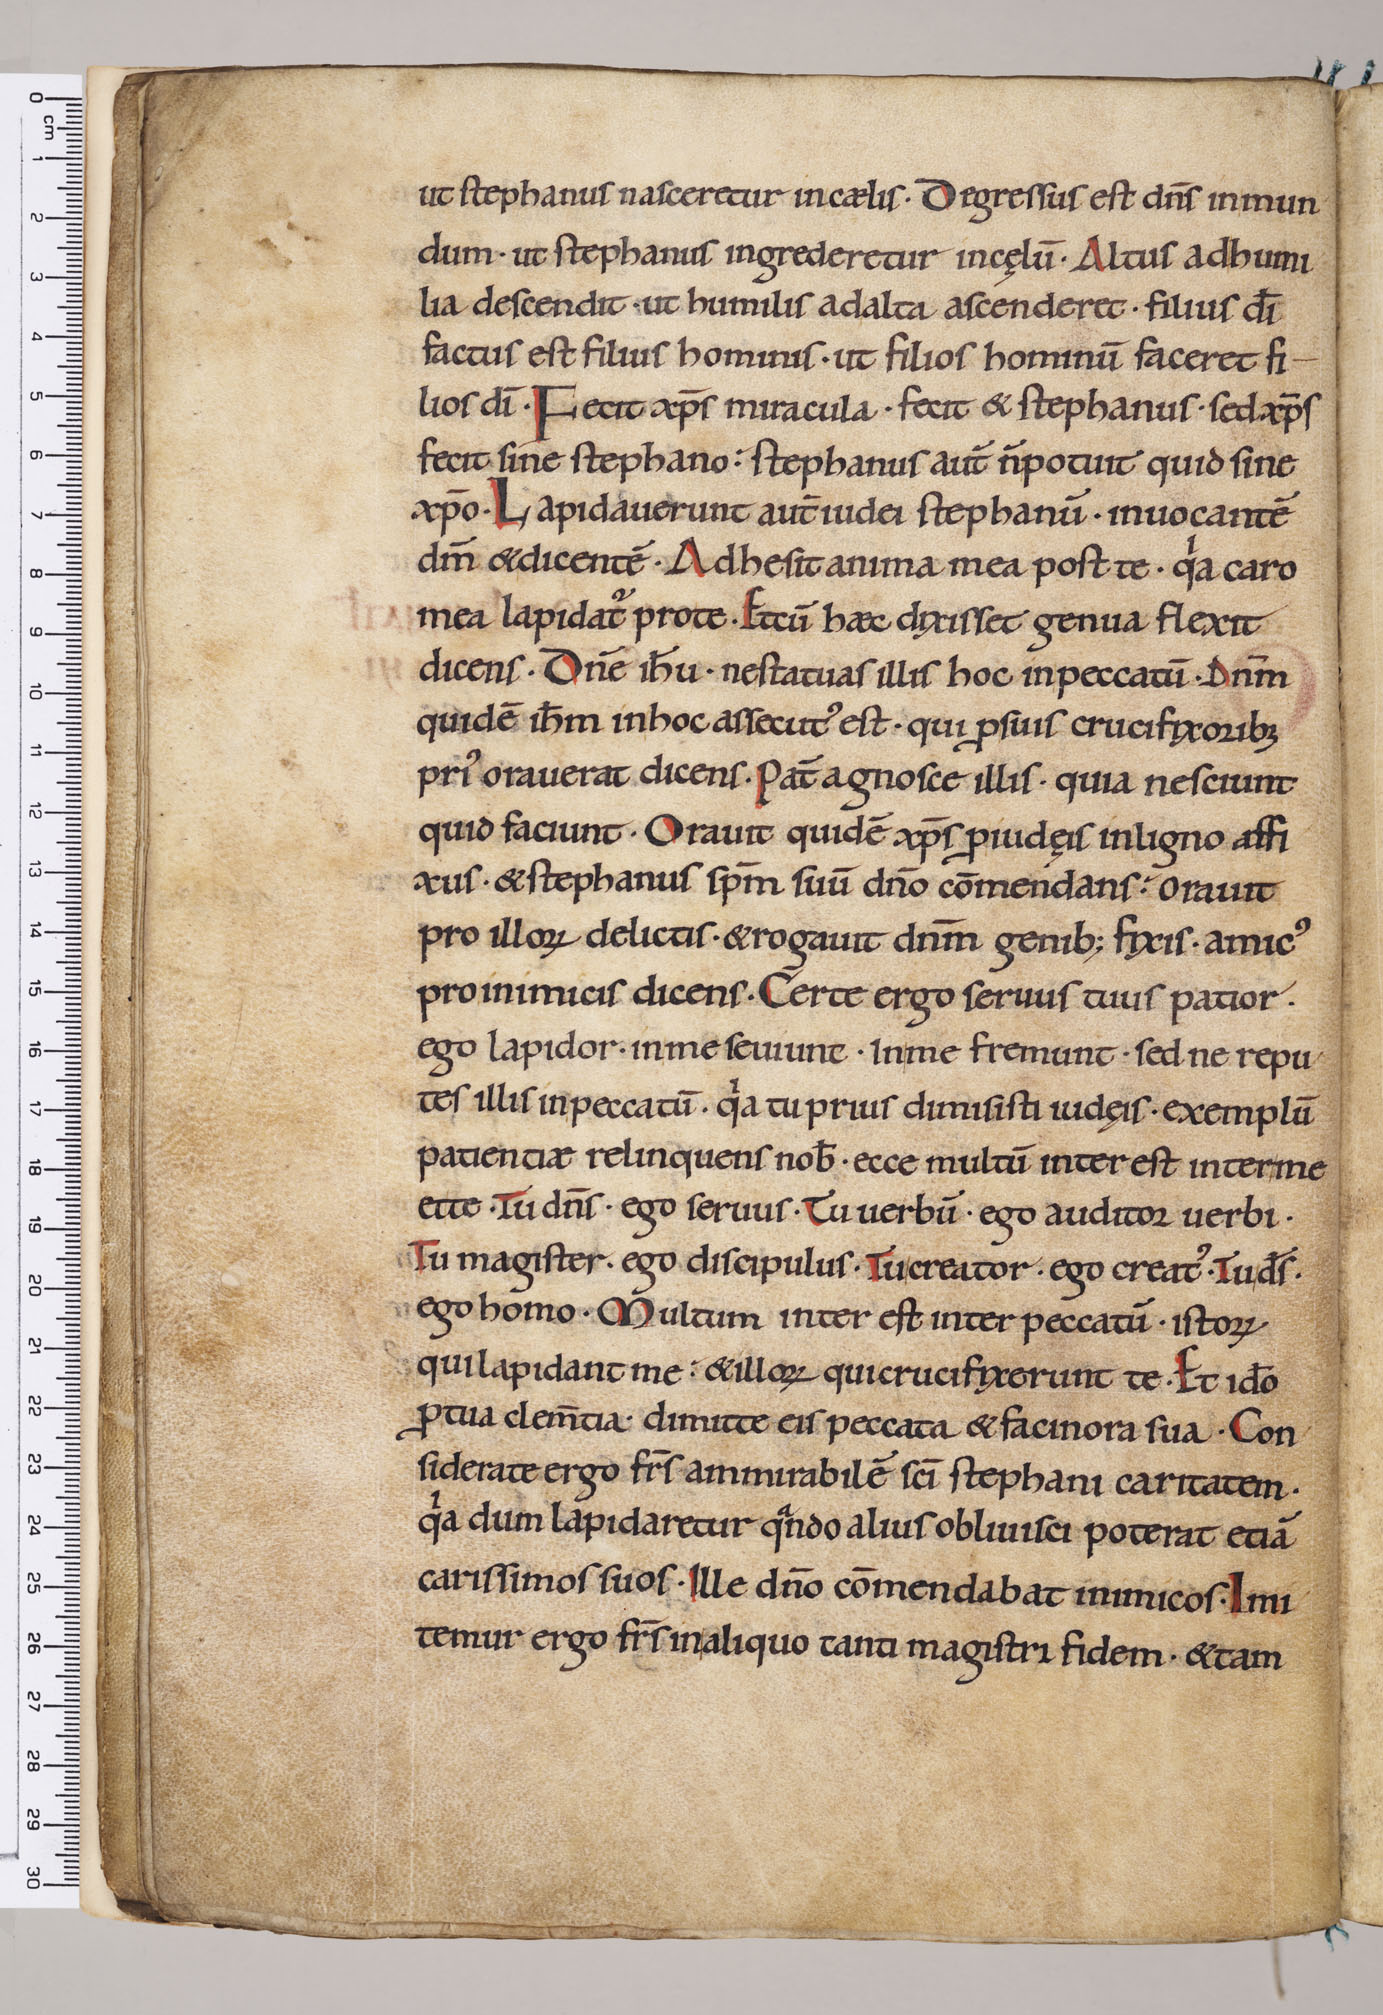 ut stephanus nasceretur in cælis · Degressus est dn̄s in mun
dum · ut stephanus ingrederetur in cęlū · Altus ad humi
lia descendit · ut humilis ad alta ascenderet · filius dī
factus est filius hominis · ut filios hominū faceret fi-
lios dī · Fecit xp̄s miracula · fecit & stephanus · sed xp̄s
fecit sine stephano : stephanus aut̄ n̄ potuit quid sine
xp̄o · Lapidauerunt aut̄ iudei stephanū · inuocantē
dm̄ & dicentē · Adhesit anima mea post te · qͥa caro
mea lapidatꝰ pro te · Et cū hæc dixisset genua flexit
dicens · Dn̄e ih̄u · ne statuas illis hoc in peccatū · Dn̄m
quidē ih̄m in hoc assecutꝰ est · qui ꝑ suis crucifixoribꝫ
priꝰ orauerat dicens · Pat̄ agnosce illis · quia nesciunt
quid faciunt · Orauit quidē xp̄s ꝑ iudęis in ligno affi
xus · & stephanus sp̄m suū dn̄o cōmendans : orauit
pro illoꝝ delictis · & rogauit dn̄m genib; fixis · amicꝰ
pro inimicis dicens · Certe ergo seruus tuus patior ·
ego lapidor · in me seuiunt · In me fremunt · sed ne repu
tes illis in peccatū · qͥa tu prius dimisisti iudęis · exemplū
patientiæ relinquens nob̄ · ecce multū inter est inter me
et te · Tu dn̄s · ego seruus · Tu uerbū · ego auditor uerbi ·
Tu magister · ego discipulus · Tu creator · ego creatꝰ · Tu d̄s ·
ego homo · Multum inter est inter peccatū · istoꝝ
qui lapidant me : & illoꝝ qui crucifixerunt te · Et id̄o
ꝑ tua clem̄tia · dimitte eis peccata & facinora sua · Con
siderate ergo fr̄s ammirabilē sc̄i stephani caritatem ·
qͥa dum lapidaretur qͣndo alius obliuisci poterat etiā
carissimos suos · Ille dn̄o cōmendabat inimicos · Imi
temur ergo fr̄s in aliquo tanti magistri fidem · & tam
0 cm 1 2 3 4 5 6 7 8 9 10 11 12 13 14 15 16 17 18 19 20 21 22 23 24 25 26 27 28 29 30